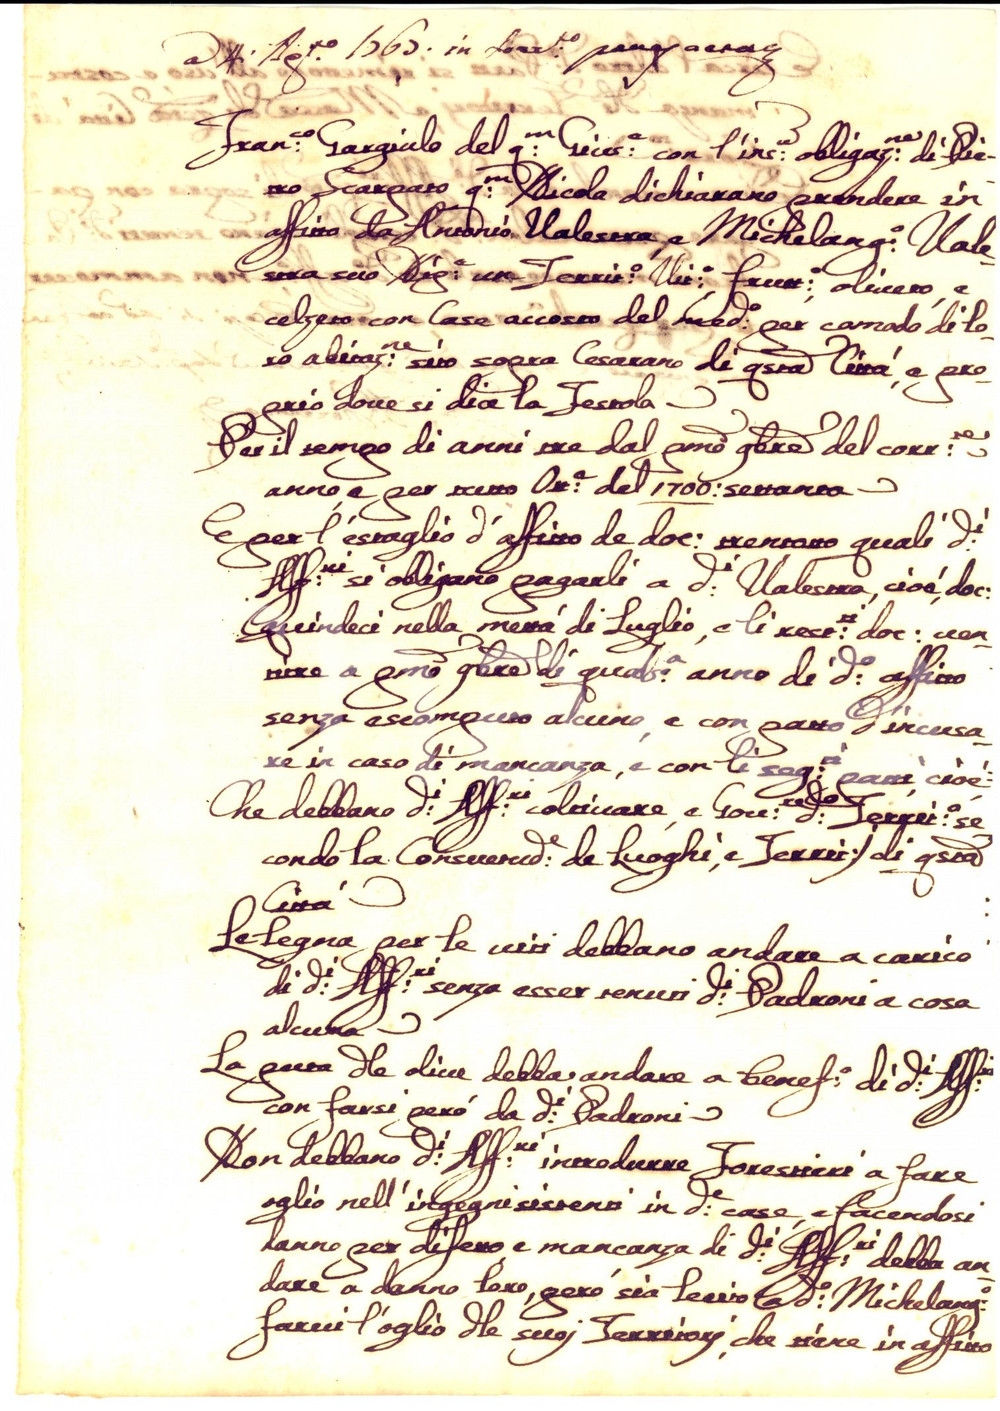 a 4: Ag.to 1767: in Sorr.to
Fran:co Gargiulo del q:m Gius:e con l'ins:a obligaz:ne di Pie-
tro Scarpato q:m Nicola dichiarano prendere in
affitto da Antonio Valestra, e Michelang:o Vale-
stra suo Nip:e un Territ:o Vit:o, frutt:o, oliveto, e
celzeto con Case accosto del med:o per comodo di lo-
ro abitaz:ne sito sopra Cesarano di qsta Città, e pro-
prio dove si dice la Testola
Per il tempo di anni tre dal pmo 9bre del corr:te
anno, e per tutto Ott:e del 1700: settanta
E per l'estaglio d'affitto de doc: trentotto quali d:i
Aff:ri si obligano pagarli a d:i Valestra, cioé, doc:
quindeci nella mettá di Luglio, e li rest:ti doc: ven-
titre a pmo 9bre di quals:a anno di d:o affitto
senza escomputo alcuno, e con patto d'incusa-
re in caso di mancanza, e con li seg:ti patti, cioé:
Che debbano d:i Aff:ri coltivare, e Gov:re d:o Territ:o se
condo la Consuetud:e de Luoghi, e Territ:j di qsta
Cittá
Le legna per le viti debbano andare a carico
di d:i Aff:ri senza esser tenuti d:i Padroni a cosa
alcuna
La puta dle olive debba andare a benef:o di d:i Aff:ri
con farsi però da d:i Padroni
Non debbano d:i Aff:ri introdurre Forestieri a fare
oglio nell'ingegni sistenti in d:e case, e facendosi
danno per difetto e mancanza di d:i Aff:ri debba an-
dare a danno loro, peró sia lecito a d:o Michelang:o
farvi l'oglio dle suoj Territorj, che tiene in affitto